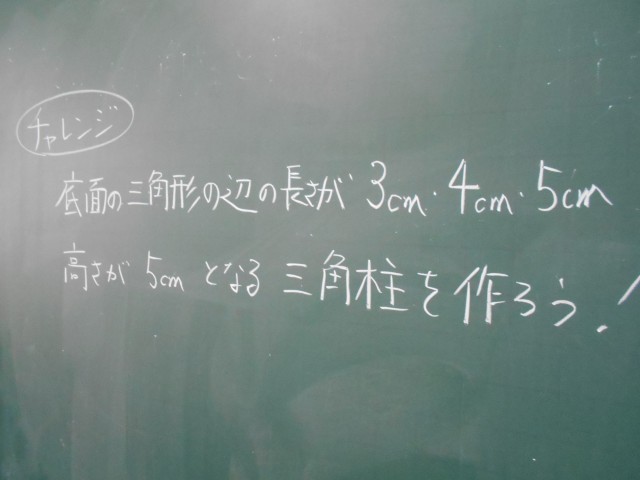 チャレンジ
底面の三角形の辺の長さが 3cm・4cm・5cm
高さが 5cm となる 三角柱を作ろう!